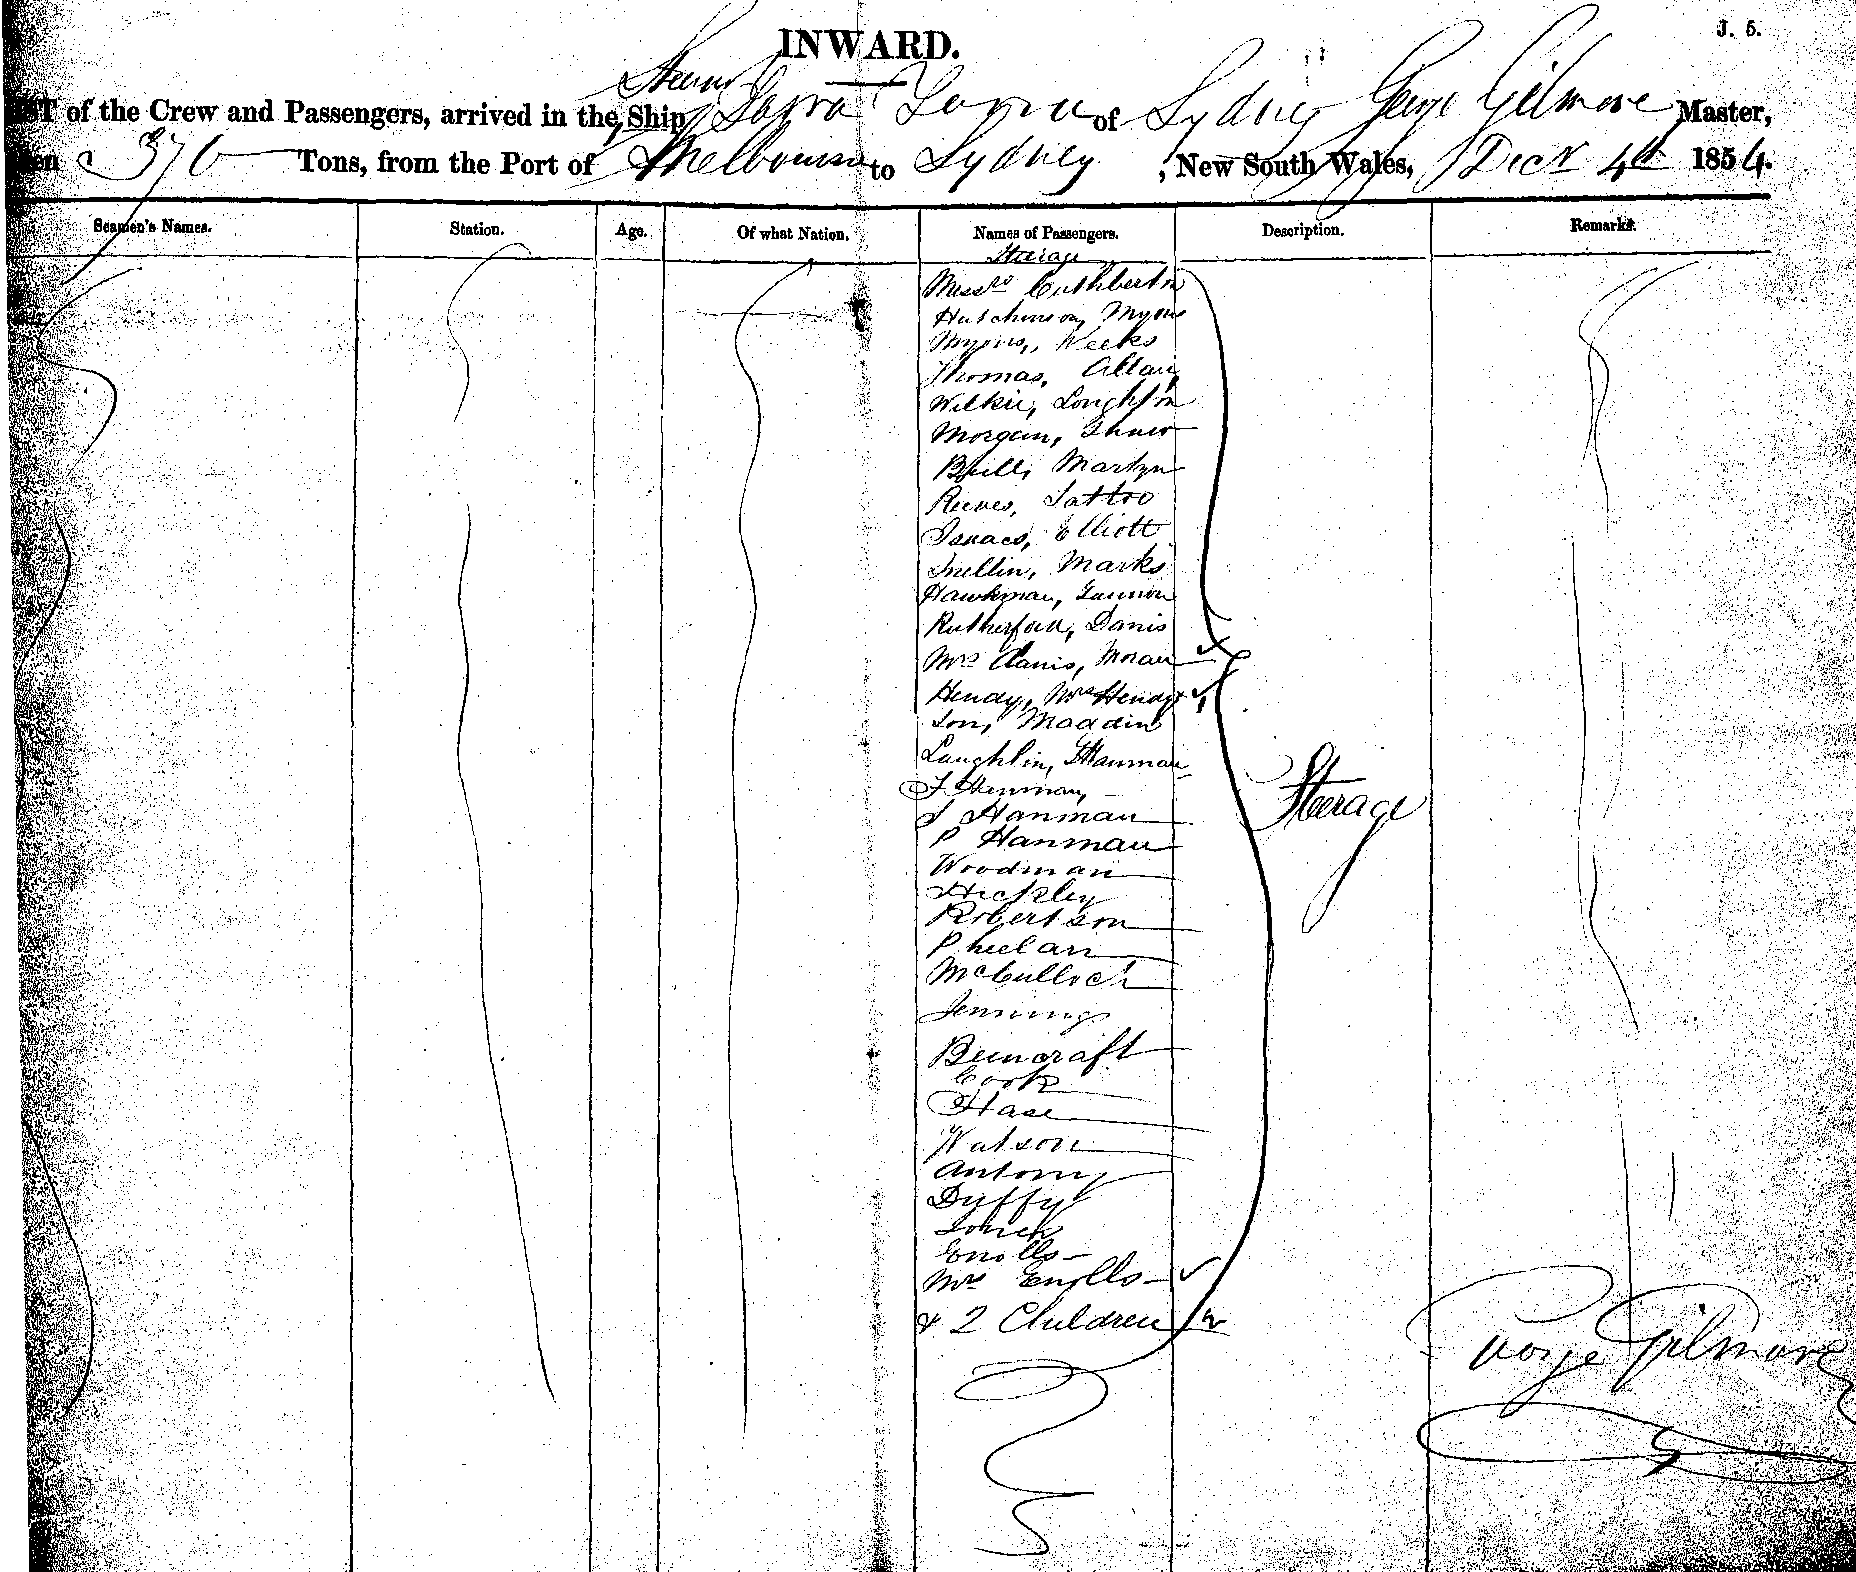 J. 5.
INWARD.
Steam
ST of the Crew and Passengers, arrived in the Ship Yarra Yarra of Sydney George Gilmore Master,
376 Tons, from the Port of Melbourne to Sydney, New South Wales, Decr 4th 1854.
Seamen's Names. Station. Age. Of what Nation. Names of Passengers. Description. Remarks.
Steerage
Messrs Cuthberton
Hutchinson, Myons
Myons, Weeks
Thomas, Allan
Wilkie, Loughton
Morgan, Shaw
Martyn
Reeves, Tattoo
Isaacs, Elliott
Snellin, Marks
Hawkman, Gannon
Rutherford, Danis
Mrs Danis, Moran
Hendy, Mrs Hendy
Son, Maddin
Laughlin, Hanman
J Hanman,
J Hanman
P Hanman
Woodman
Hickley
Robertson
Pheelan
McCulloch
Jennings
Beencraft
Cook
Hase
Watson
Antony
Duffy
Enolls
Mrs Enolls
& 2 Children 2
Steerage
George Gilmore